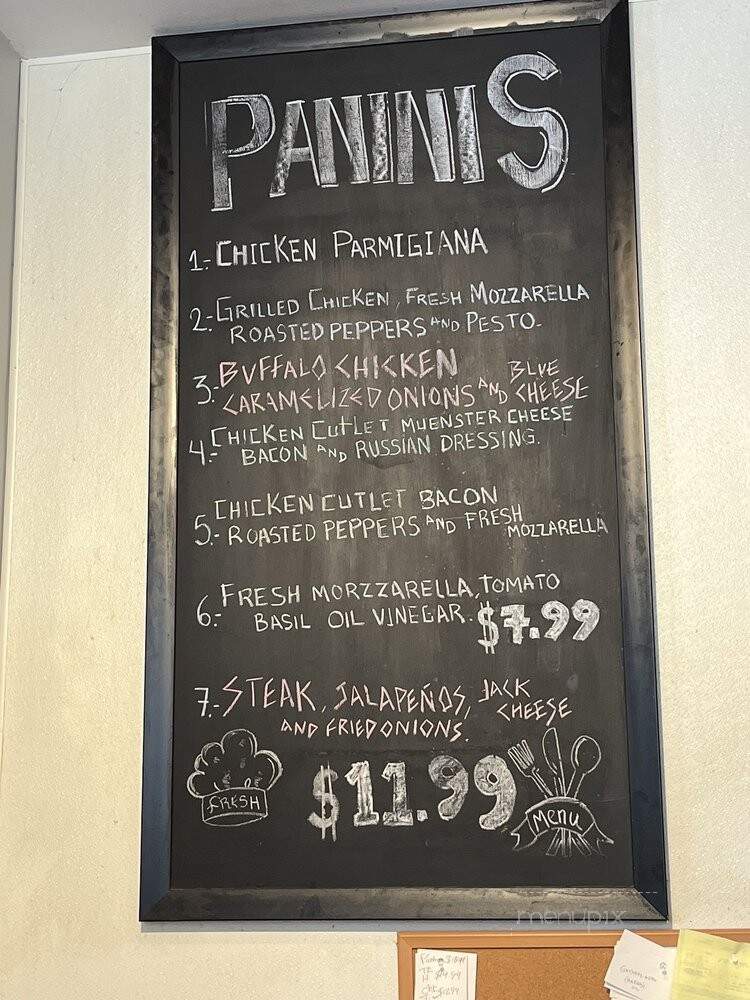 PANINIS
1.- CHICKEN PARMIGIANA
2.- GRILLED CHICKEN, FRESH MOZZARELLA
ROASTED PEPPERS AND PESTO-
3.- BUFFALO CHICKEN
CARAMELIZED ONIONS AND BLUE CHEESE
4.- CHICKEN CUTLET MUENSTER CHEESE
BACON AND RUSSIAN DRESSING.
5.- CHICKEN CUTLET BACON
ROASTED PEPPERS AND FRESH MOZZARELLA
6.- FRESH MORZZARELLA, TOMATO
BASIL OIL VINEGAR. $7.99
7.- STEAK, JALAPEÑOS, JACK CHEESE
AND FRIED ONIONS.
FRESH
$11.99
Menu
menupix